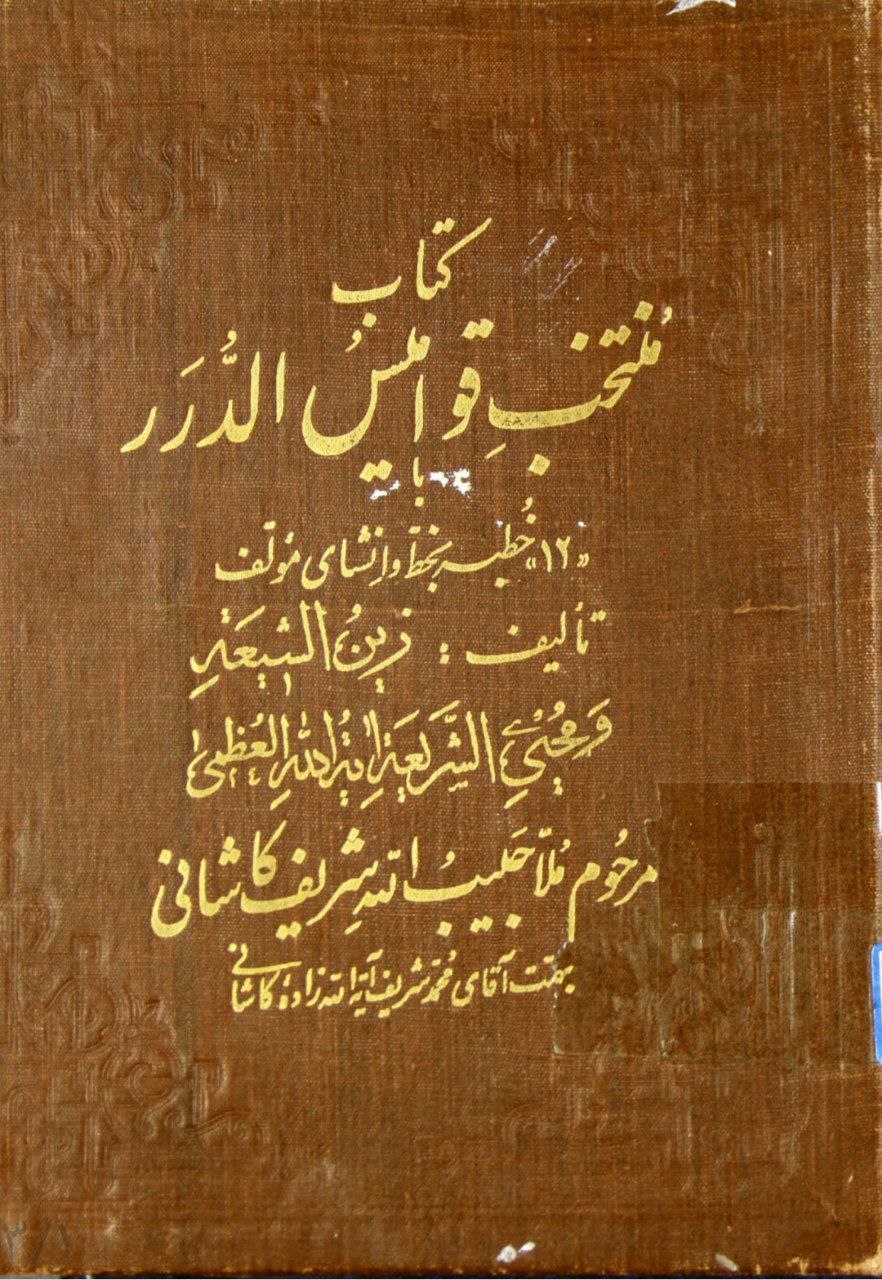 کتاب
مُنتخبِ قوامیسُ الدُّرَر
با
«۱۲» خُطبه بخط و انشای مؤلف
تألیف : زینُ الشیعَةِ
وَ مُحْیِي الشَّریعَةِ ایَةُ اللهِ العُظمیٰ
مرحُوم مُلّا حَبیبُ الله شریف کاشانی
بهمّت آقای مُحمّد شریف آیة الله زادۀ کاشانی
۳/۱